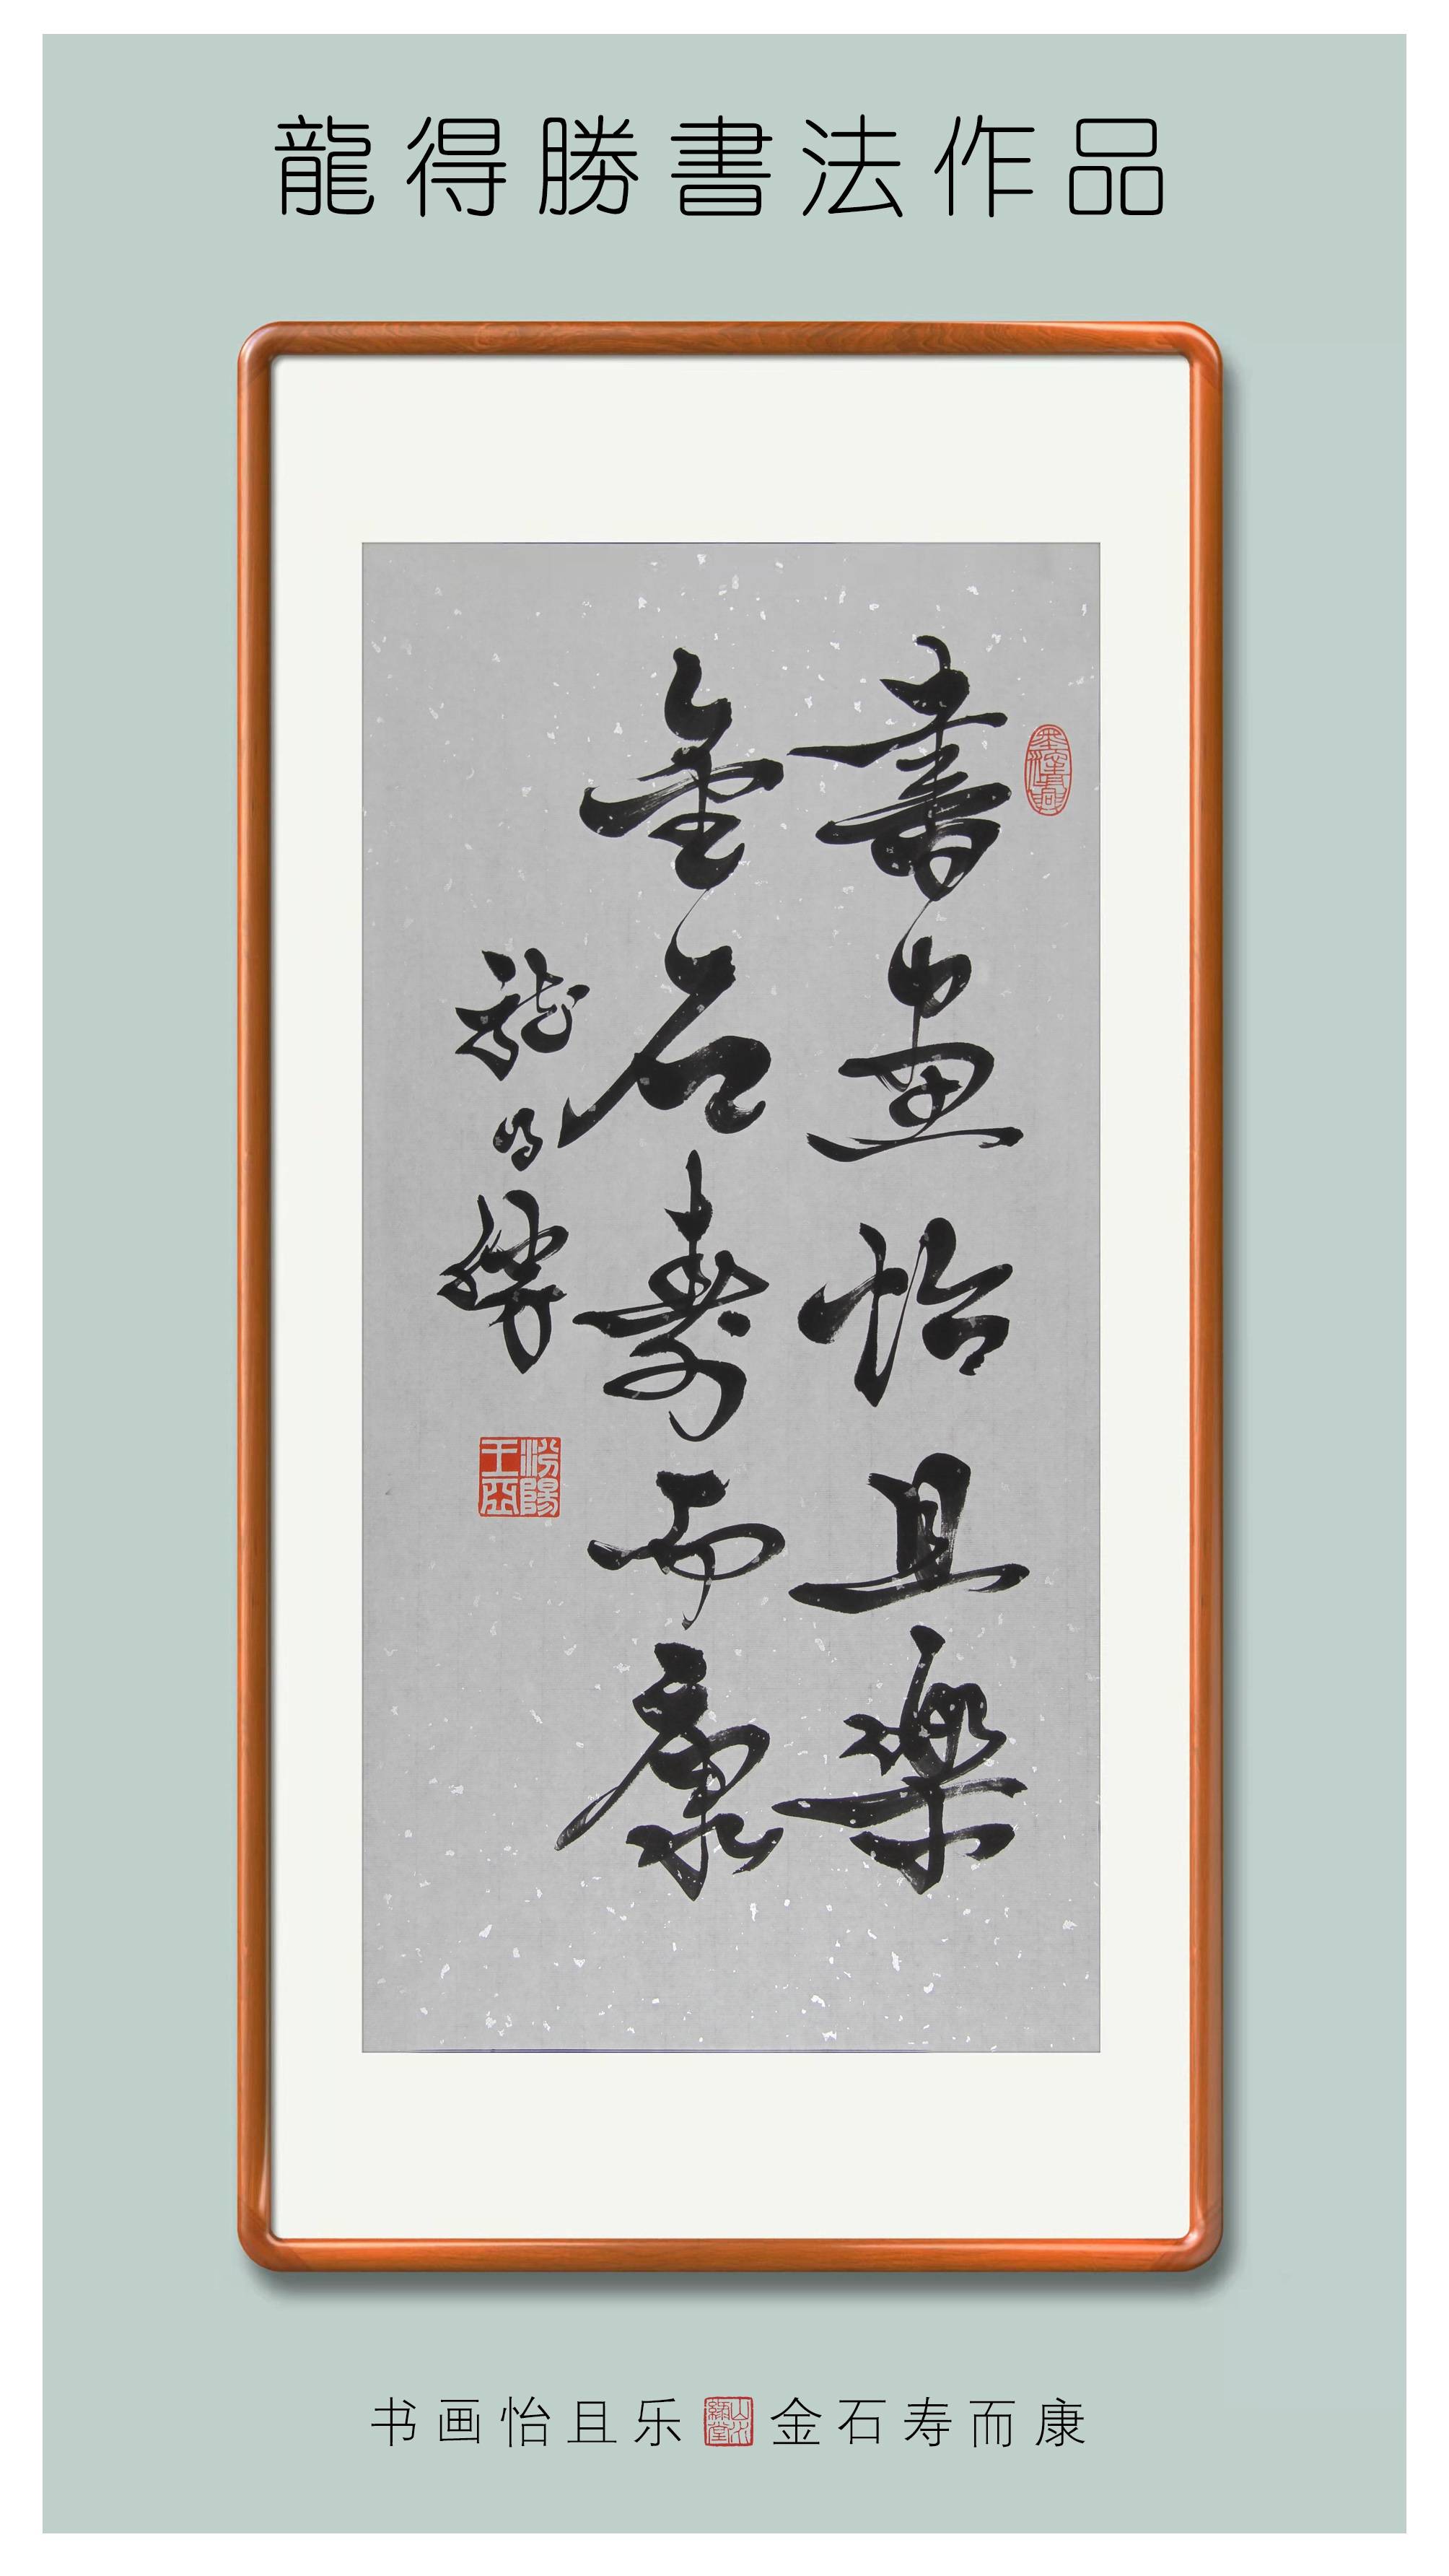 龍得勝書法作品
書畫怡且樂
金石壽而康
龍得勝
汾陽王函
书画怡且乐 金石寿而康